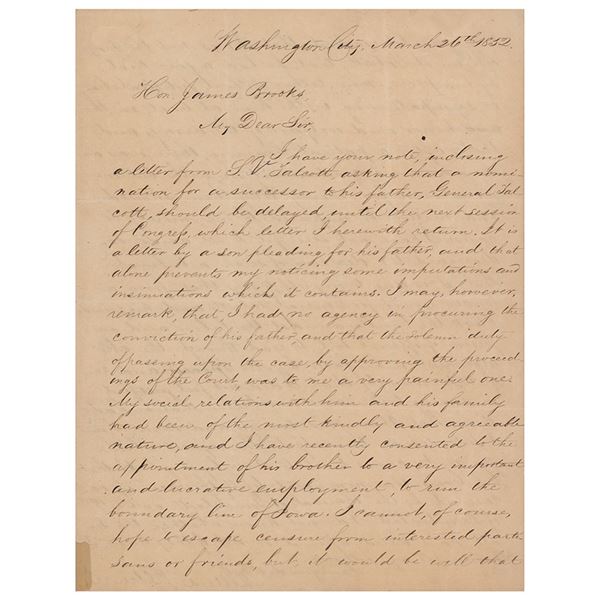 Washington City, March 26th 1852.
Hon James Brooks,
My Dear Sir,
I have your note, inclosing
a letter from S. V. Talcott asking that a nomi-
nation for a successor to his father, General Tal-
cott, should be delayed until the next session
of Congress, which letter I herewith return. It is
a letter by a son pleading for his father, and that
alone prevents my noticing some imputations and
insinuations which it contains. I may, however,
remark, that I had no agency in procuring the
conviction of his father, and that the solemn duty
of passing upon the case, by approving the proceed-
ings of the Court, was to me a very painful one.
My social relations with him and his family
had been of the most kindly and agreeable
nature, and I have recently consented to the
appointment of his brother to a very important
and lucrative employment, to run the
boundary line of Iowa. I cannot, of course,
hope to escape censure from interested parti-
sans or friends, but it would be well that